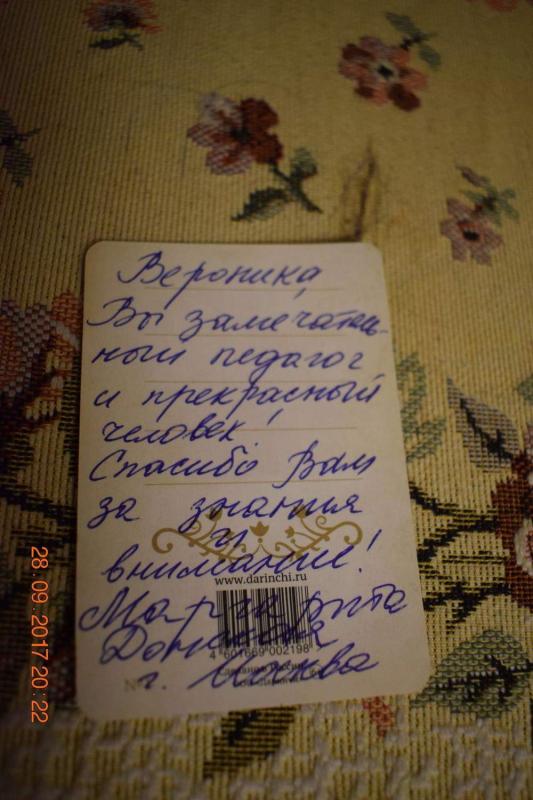 Вероника,
Вы замечатель-
ный педагог
и прекрасный
человек!
Спасибо Вам
за знания
и
внимание!
www.darinchi.ru
Маргарита
4 601669 002198
Сделано в России
г. Москва
28.09.2017 20:22